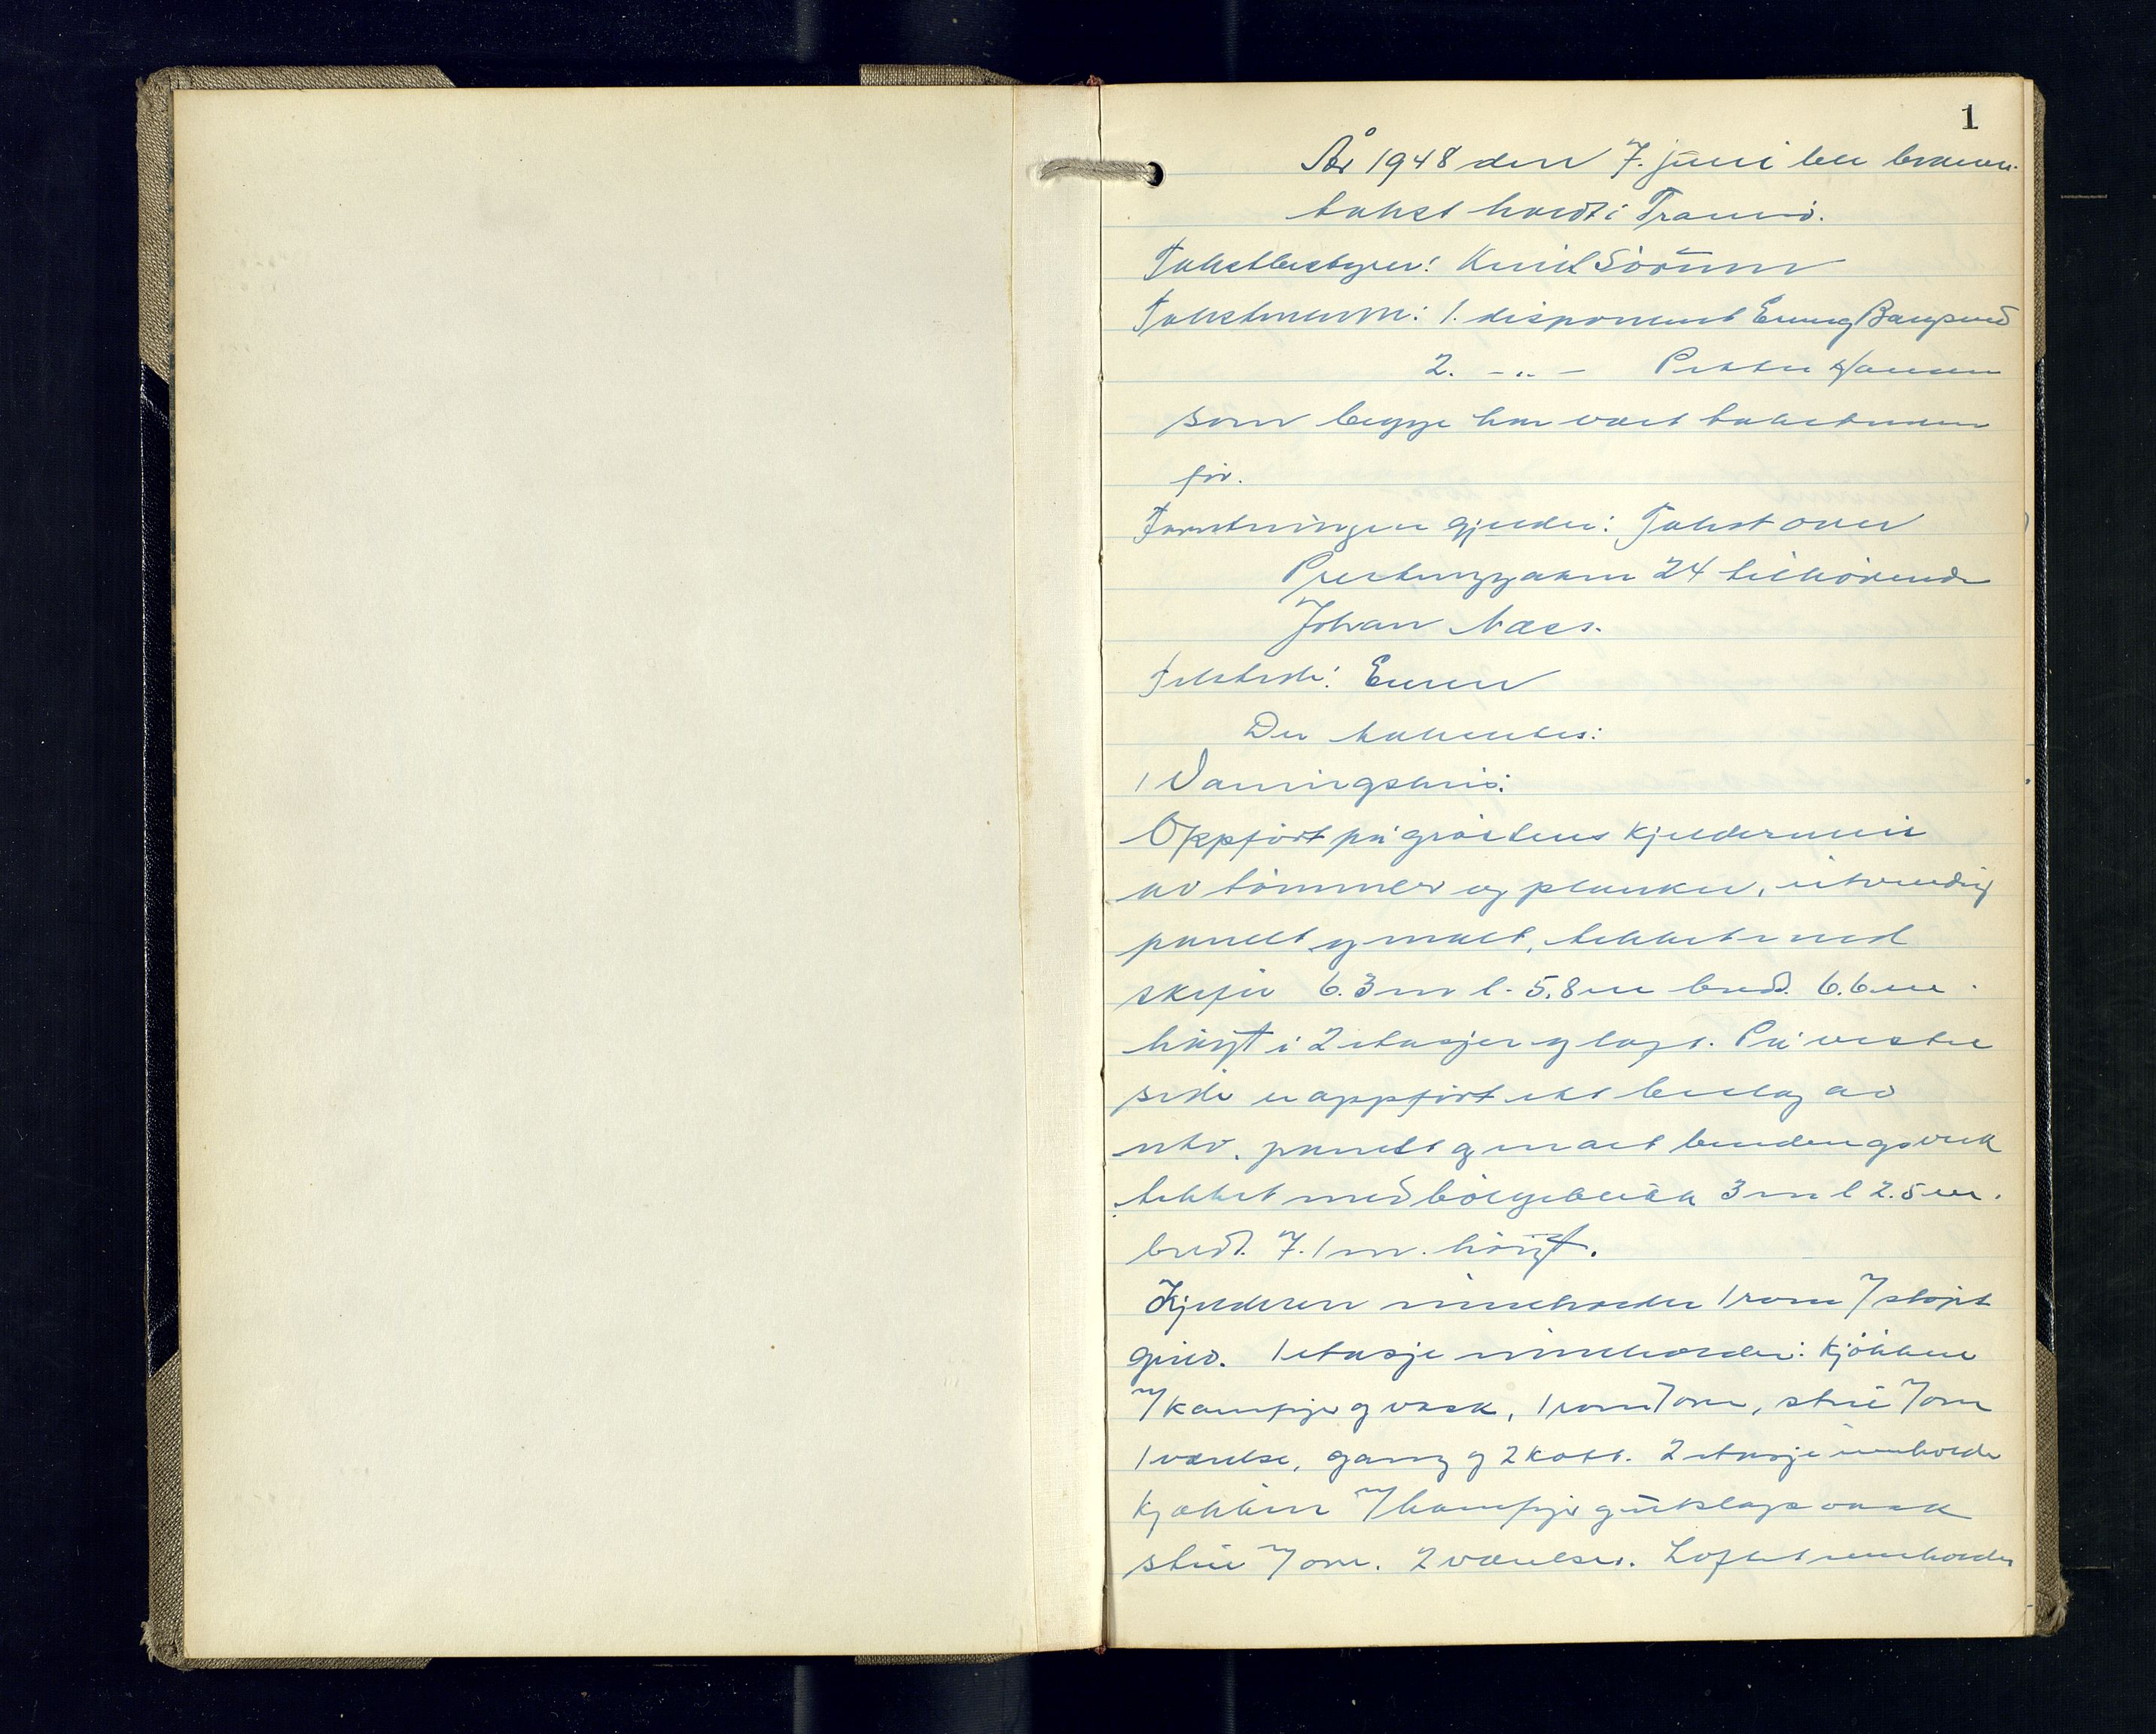 1
År 1948 den 7. juni ble brann-
takst holdt i Tromsö.
Takstbestyrer: Knut Sörum
Takstmenn: 1. disponent Erling Bangsund
2. - „ - Petter Hansen
som begge har vært takstmenn
för.
Forretningen gjelder: Takst over
Prestenggaten 24 tilhörende
Johan Næss.
Tilstede: Eieren
Der taksertes:
1 Våningshus:
Oppfört på gråstens kjeldermur
av tömmer og planker, utvendig
panelt og malt, tekket med
skifer 6.3 m l. 5.8 m bredt. 6.6 m.
höyt i 2 etasjer og loft. På vestre
side er oppfört ett beslag av
utv. panelt og malt bindingsverk
tekket med bölgeblikk 3 m l 2.5 m.
bredt. 7.1 m. höyt.
Kjelderen inneholder 1 rom m/ stöpt
gulv. 1 etasje inneholder: kjökken
m/ komfyr og vask, 1 rom m/ ovn, stue m/ ovn
1 værelse, gang og 2 kott. 2 etasje inneholder
kjökken m/ komfyr og utslagsvask
stue m/ ovn. 2 værelser. Loftet inneholder